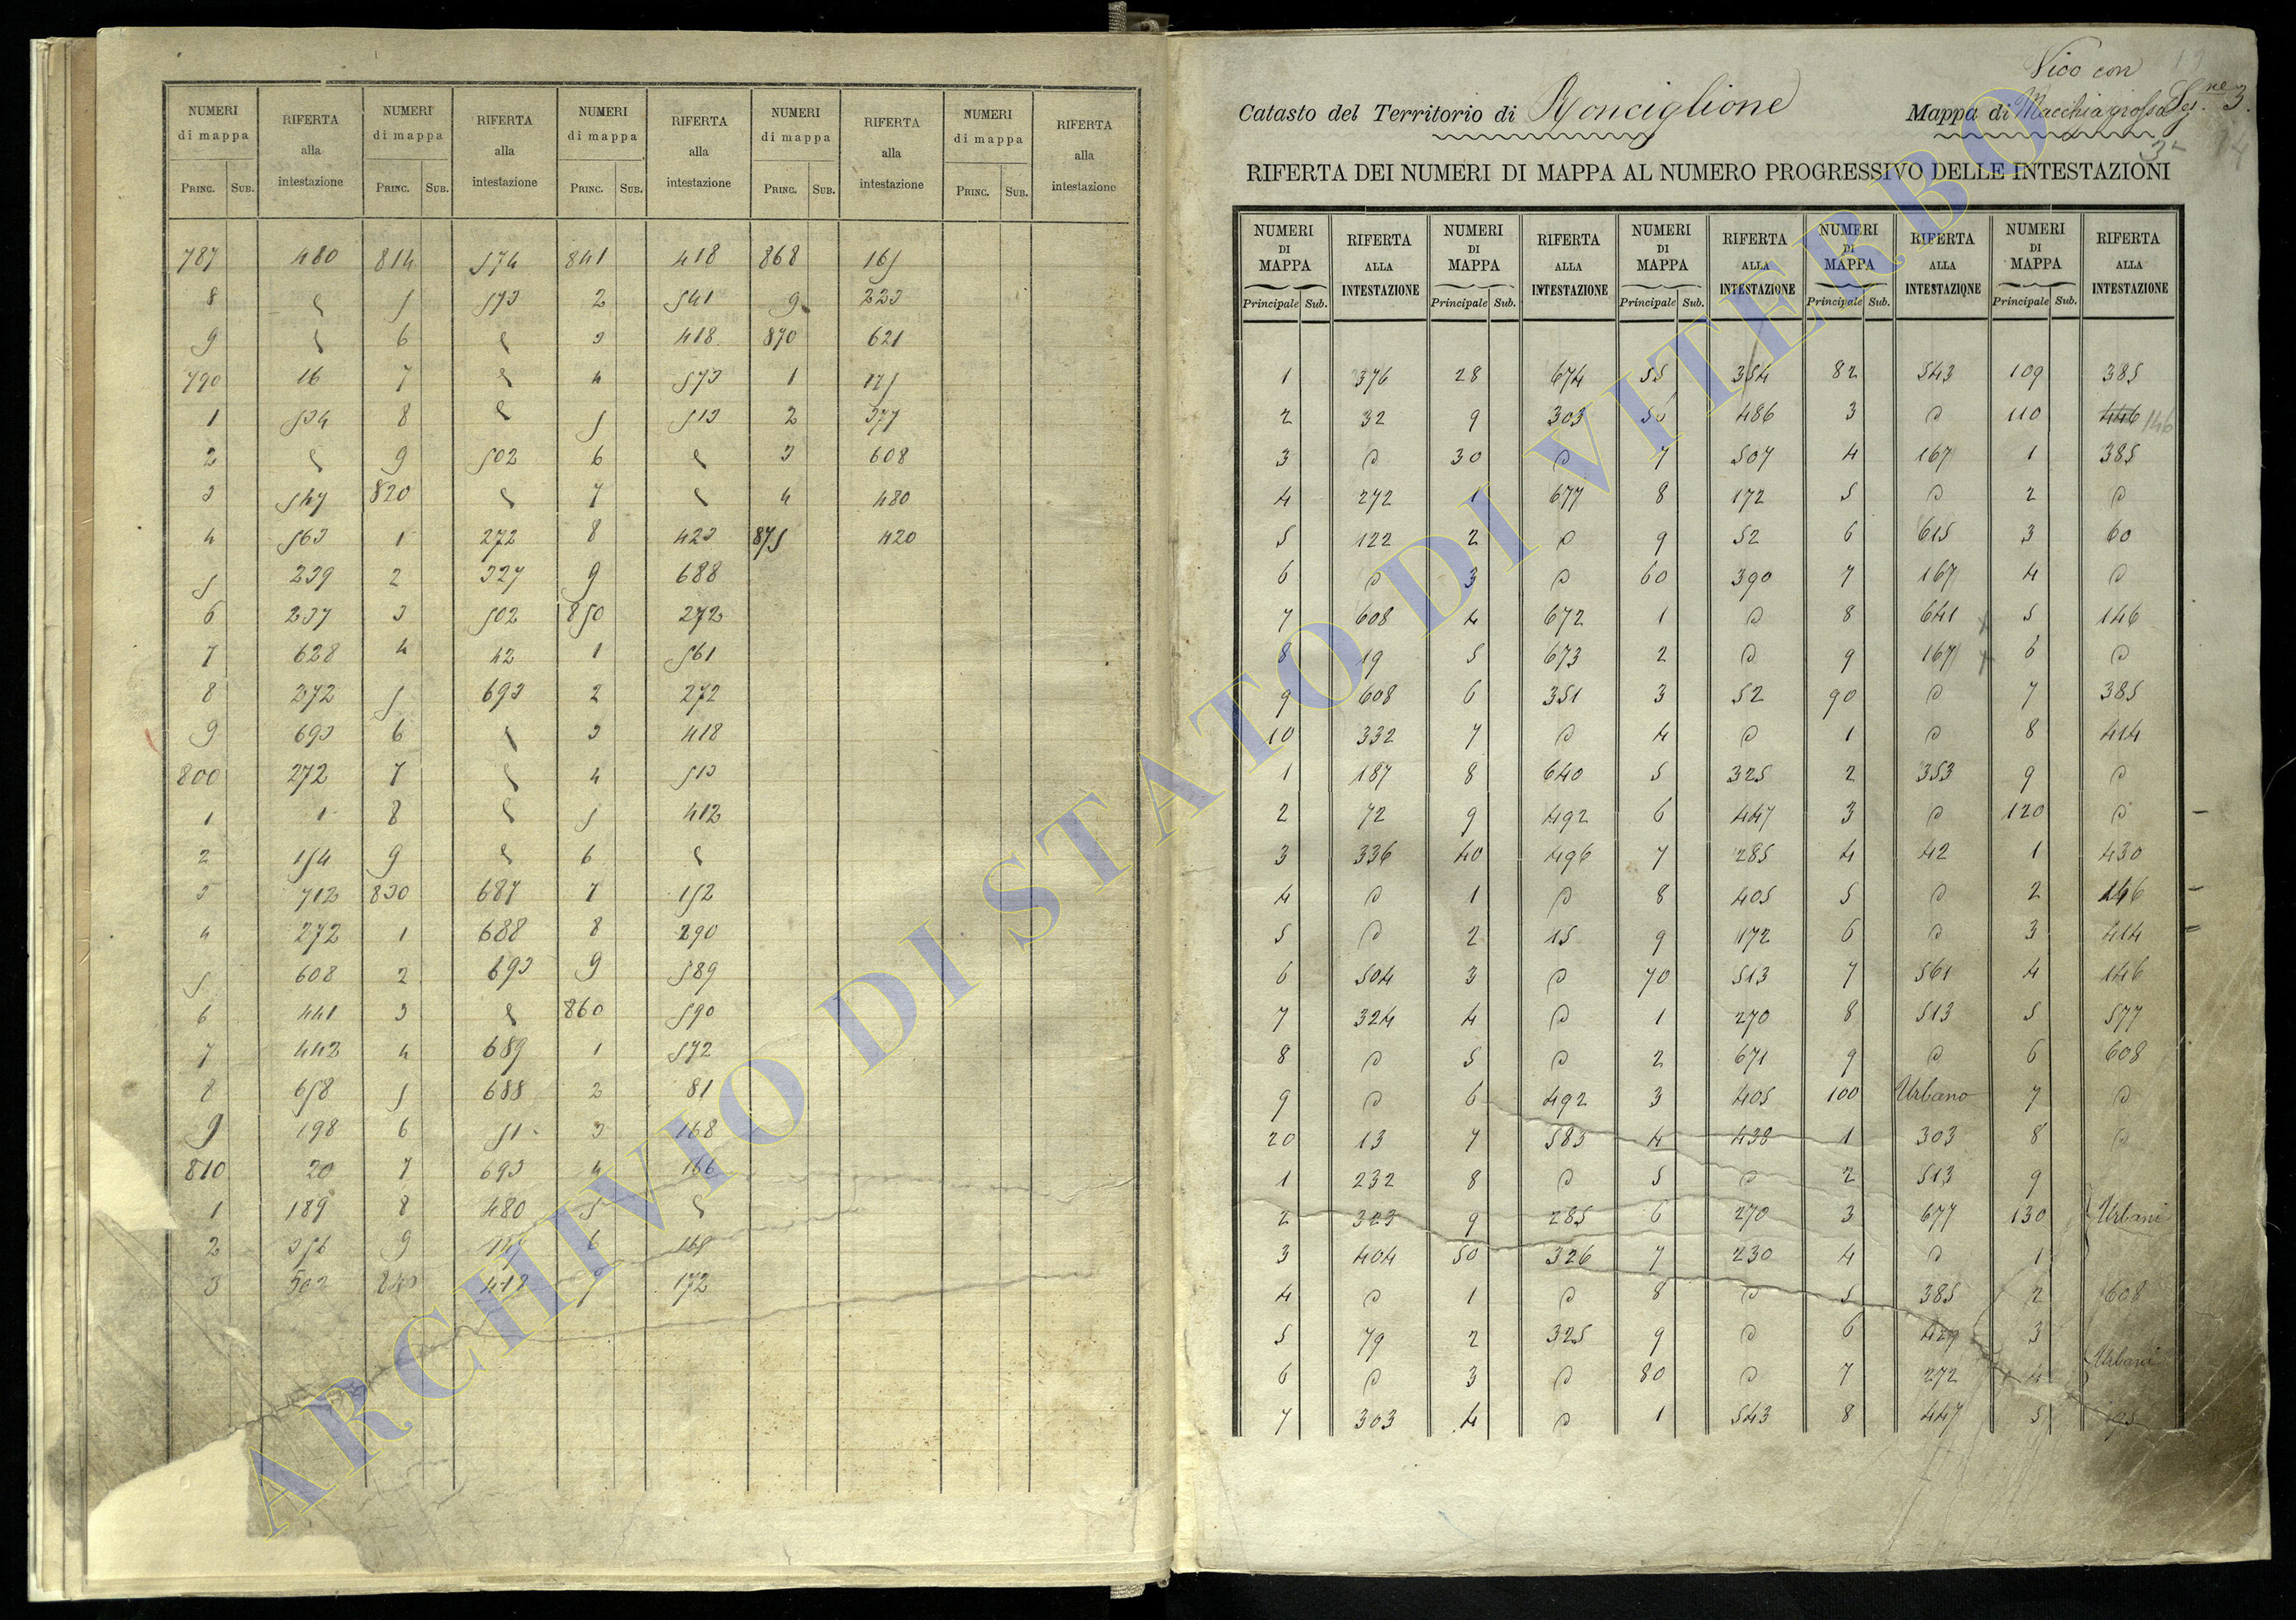 NUMERI di mappa RIFERTA alla intestazione NUMERI di mappa RIFERTA alla intestazione NUMERI di mappa RIFERTA alla intestazione NUMERI di mappa RIFERTA alla intestazione NUMERI di mappa RIFERTA alla intestazione
PRINC. SUB. PRINC. SUB. PRINC. SUB. PRINC. SUB. PRINC. SUB.
787 480 814 574 841 418 868 165
8 5 573 2 541 9 223
9 6 3 418 870 621
790 16 7 4 573 1 175
1 534 8 5 513 2 377
2 9 502 6 3 608
3 547 820 7 4 480
4 563 1 272 8 423 875 420
5 239 2 327 9 688
6 237 3 502 850 272
7 628 4 42 1 561
8 272 5 693 2 272
9 693 6 3 418
800 272 7 4 513
1 1 8 5 412
2 154 9 6
3 712 830 687 7 152
4 272 1 688 8 290
5 608 2 693 9 589
6 441 3 860 590
7 442 4 689 1 572
8 658 5 688 2 81
9 198 6 51 3 168
810 20 7 693 4 166
1 189 8 480 5
2 356 9 6
3 502 840 412 7 172
Vico con
Catasto del Territorio di Ronciglione Mappa di Macchia grossa Sez.ne 3.
RIFERTA DEI NUMERI DI MAPPA AL NUMERO PROGRESSIVO DELLE INTESTAZIONI
NUMERI DI MAPPA RIFERTA ALLA INTESTAZIONE NUMERI DI MAPPA RIFERTA ALLA INTESTAZIONE NUMERI DI MAPPA RIFERTA ALLA INTESTAZIONE NUMERI DI MAPPA RIFERTA ALLA INTESTAZIONE NUMERI DI MAPPA RIFERTA ALLA INTESTAZIONE
Principale Sub. Principale Sub. Principale Sub. Principale Sub. Principale Sub.
1 376 28 674 55 354 82 543 109 385
2 32 9 303 56 486 3 D 110 446 146
3 D 30 D 7 507 4 167 1 385
4 272 1 677 8 172 5 D 2 D
5 122 2 D 9 52 6 615 3 60
6 D 3 D 60 390 7 167 4 D
7 608 4 672 1 D 8 641 5 146
8 19 5 673 2 D 9 167 6 D
9 608 6 351 3 52 90 D 7 385
10 332 7 D 4 D 1 D 8 414
1 187 8 640 5 325 2 353 9 D
2 72 9 492 6 447 3 D 120 D
3 336 40 496 7 285 4 42 1 430
4 D 1 D 8 405 5 D 2 146
5 D 2 15 9 172 6 D 3 414
6 504 3 D 70 513 7 561 4 146
7 324 4 D 1 270 8 513 5 577
8 D 5 D 2 671 9 D 6 608
9 D 6 492 3 405 100 Urbano 7 D
20 13 7 583 4 438 1 303 8 D
1 232 8 D 5 D 2 513 9
2 323 9 285 6 270 3 677 130 Urbani
3 404 50 326 7 230 4 D 1
4 D 1 D 8 D 5 385 2 608
5 79 2 325 9 D 6 429 3
6 D 3 D 80 D 7 272 4 Urbani
7 303 4 D 1 543 8 447 5
ARCHIVIO DI STATO DI VITERBO